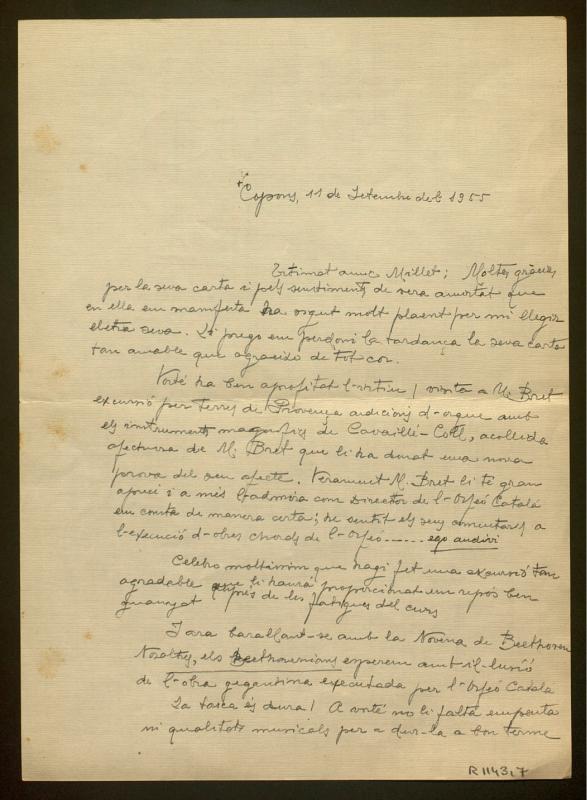 Copons, 11 de Setembre del 1955
Estimat amic Millet; Moltes gràcies
per la seva carta i pels sentiments de vera amistat que
en ella em manifesta ha sigut molt plaent per mi llegir
lletra seva. Li prego em perdoni la tardança la seva carta
tan amable que agraeixo de tot cor.
Vosté ha ben aprofitat l'istiu! visita a M. Bret
excursió per terres de Provença audicions d'orgue amb
els instruments magnífics de Cavaillé-Coll, acollida
afectuosa de M. Bret que li ha donat una nova
prova del seu afecte. Verament M. Bret li té gran
apreci i a més l'admira com Director de l'Orfeó Català
em consta de manera certa; he sentit els seus comentaris a
l'execució d'obres chorals de l'Orfeó ...... ego audivi
Celebro moltíssim que hagi fet una excursió tan
agradable que li haurà proporcionat un repòs ben
guanyat després de les fatigues del curs
I ara barallant-se amb la Novena de Beethoven
Nosaltres, els beethovenians esperem amb il·lusió
de l'obra gegantina executada per l'Orfeó Català
La tasca és dura! A vosté no li falta empenta
ni qualitats musicals per a dur-la a bon terme
R 1143,7